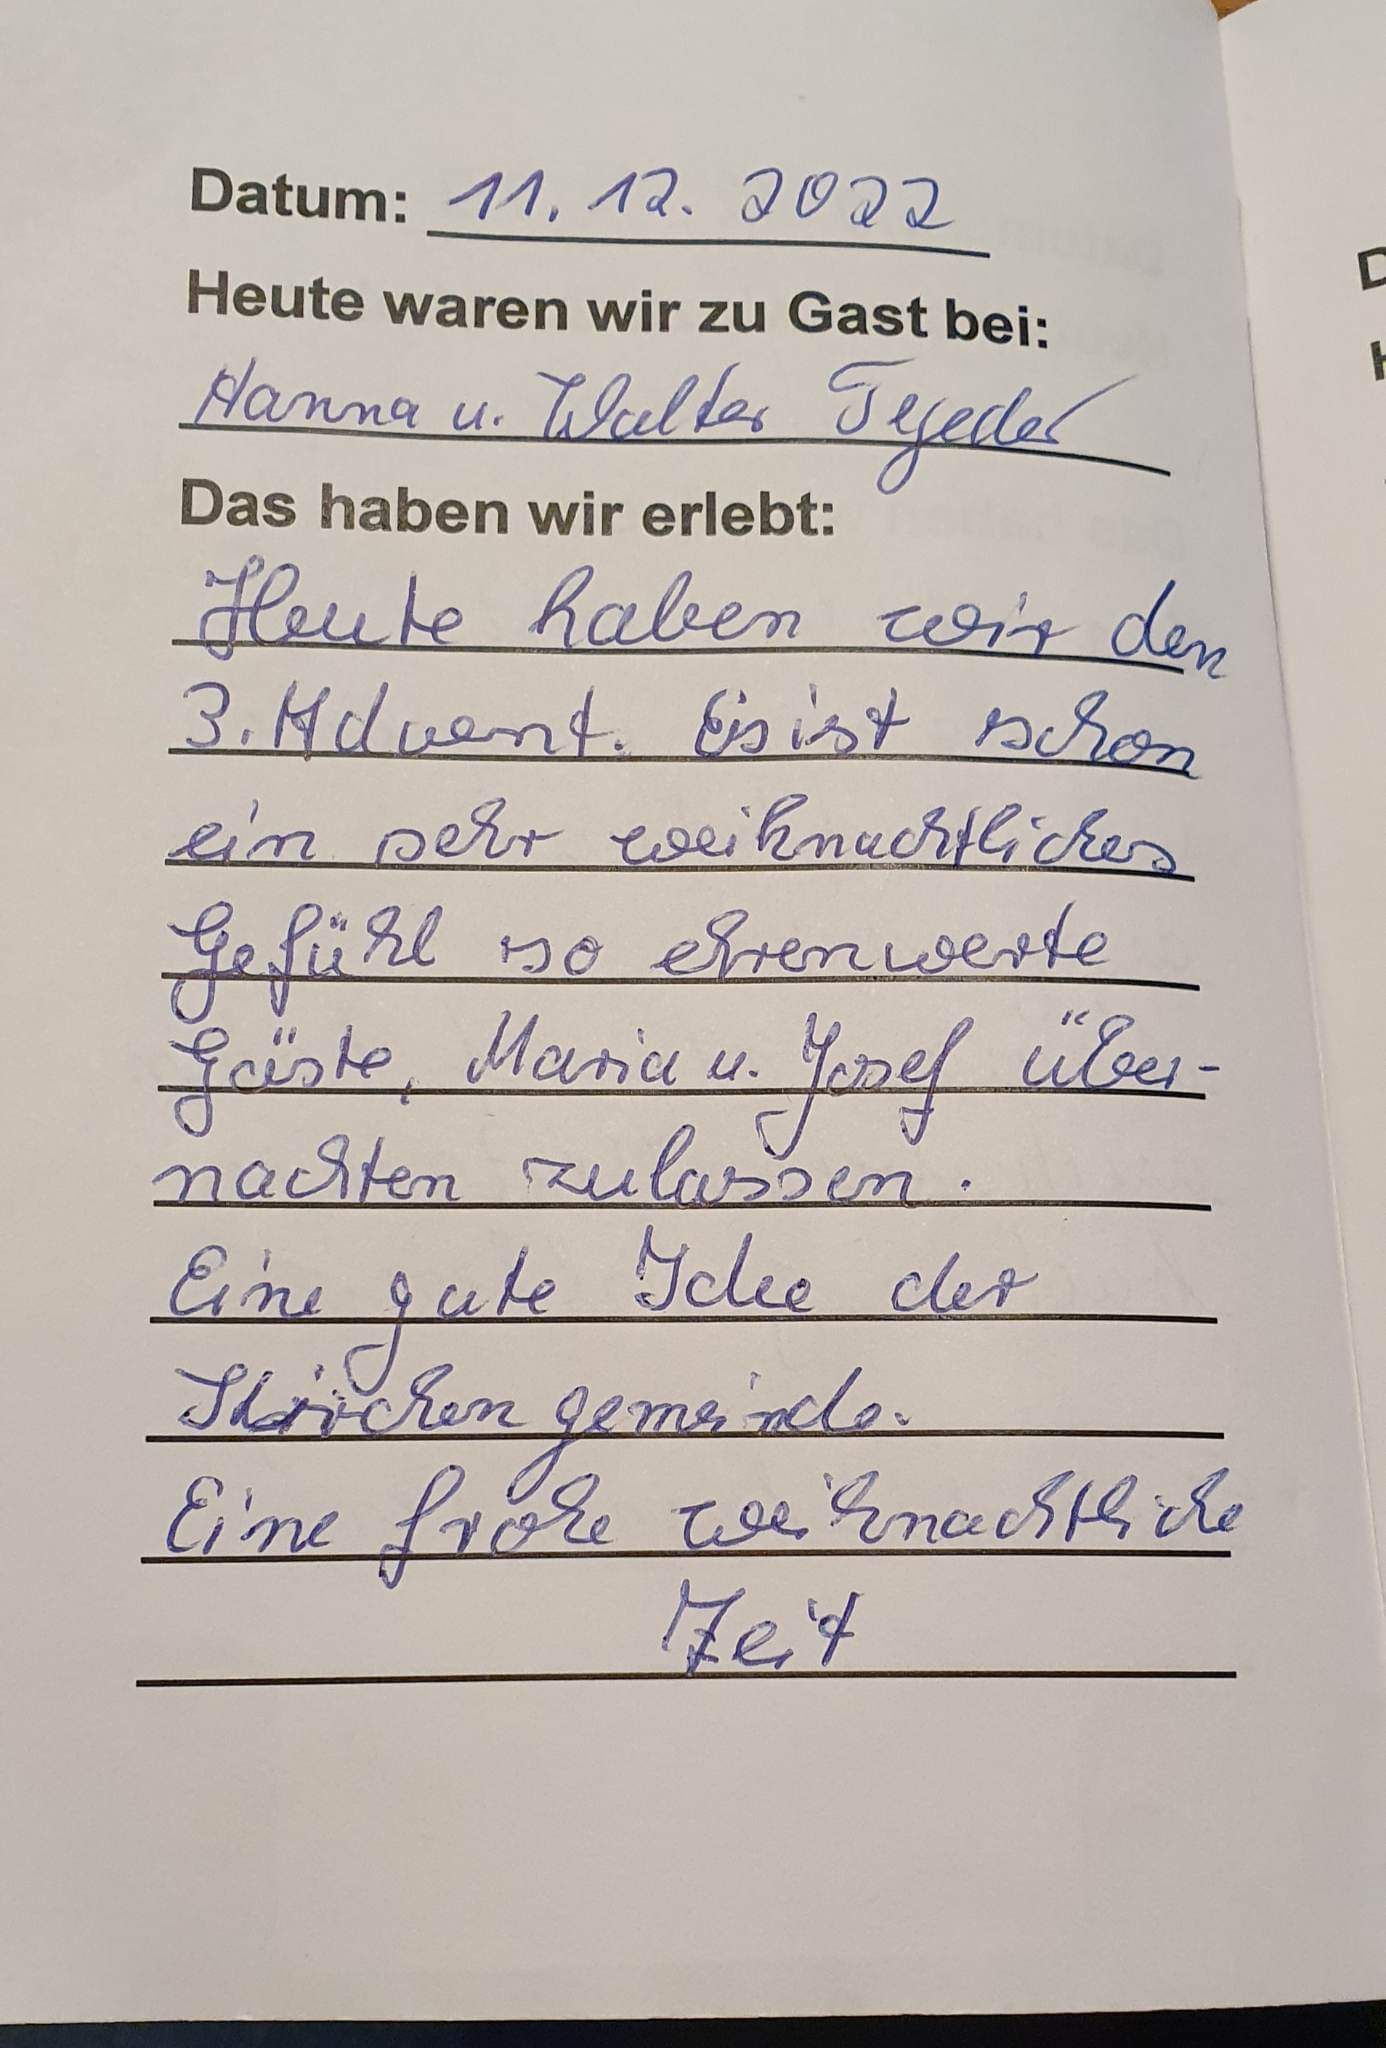 Datum: 11. 12. 2022
Heute waren wir zu Gast bei:
Hanna u. Walter Tegeder
Das haben wir erlebt:
Heute haben wir den
3. Advent. Es ist schon
ein sehr weihnachtliches
Gefühl so ehrenwerte
Gäste, Maria u. Josef über-
nachten zulassen.
Eine gute Idee der
Kirchengemeinde.
Eine frohe weihnachtliche
Zeit